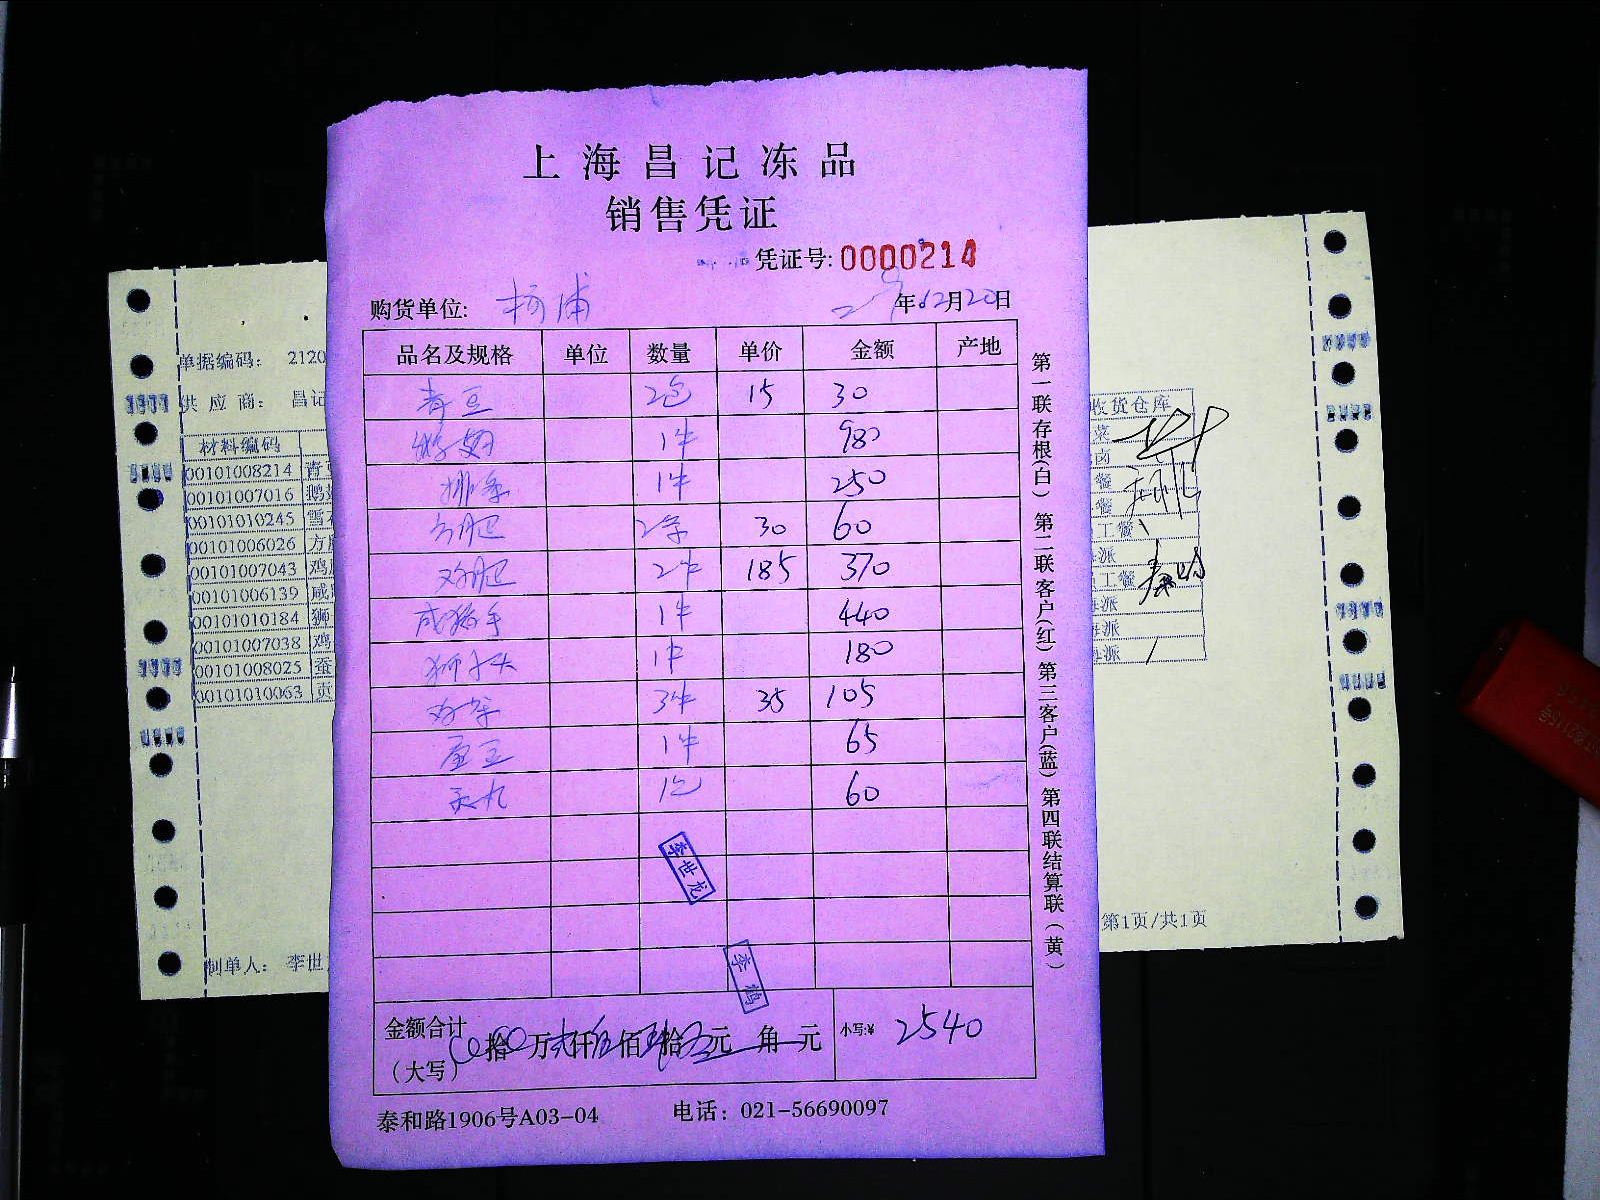 上海昌记冻品
销售凭证
凭证号:0000214
购货单位: 杨浦 年12月20日
品名及规格 单位 数量 单价 金额 产地
青豆 2包 15 30
1件 980
排条 1件 250
方腿 2条 30 60
鸡腿 2件 185 370
咸猪手 1件 440
狮子头 1件 180
3件 35 105
蚕豆 1件 65
1包 60
李世龙
李鹅
金额合计
(大写) 拾 万贰仟伍佰肆拾 元 角 元 小写:¥ 2540
泰和路1906号A03-04 电话: 021-56690097
第一联存根(白) 第二联客户(红) 第三客户(蓝) 第四联结算联(黄)
单据编码: 2120
供应商: 昌记
材料编码
00101008214 青
00101007016 鹅
00101010245 雪
00101006026 方
00101007043 鸡
00101006139 咸
00101010184 狮
00101007038 鸡
00101008025 蚕
00101010063 贡
制单人: 李世
收货仓库
菜
卤
餐
餐
工餐
派
员工餐
海派
海派
海派
第1页/共1页